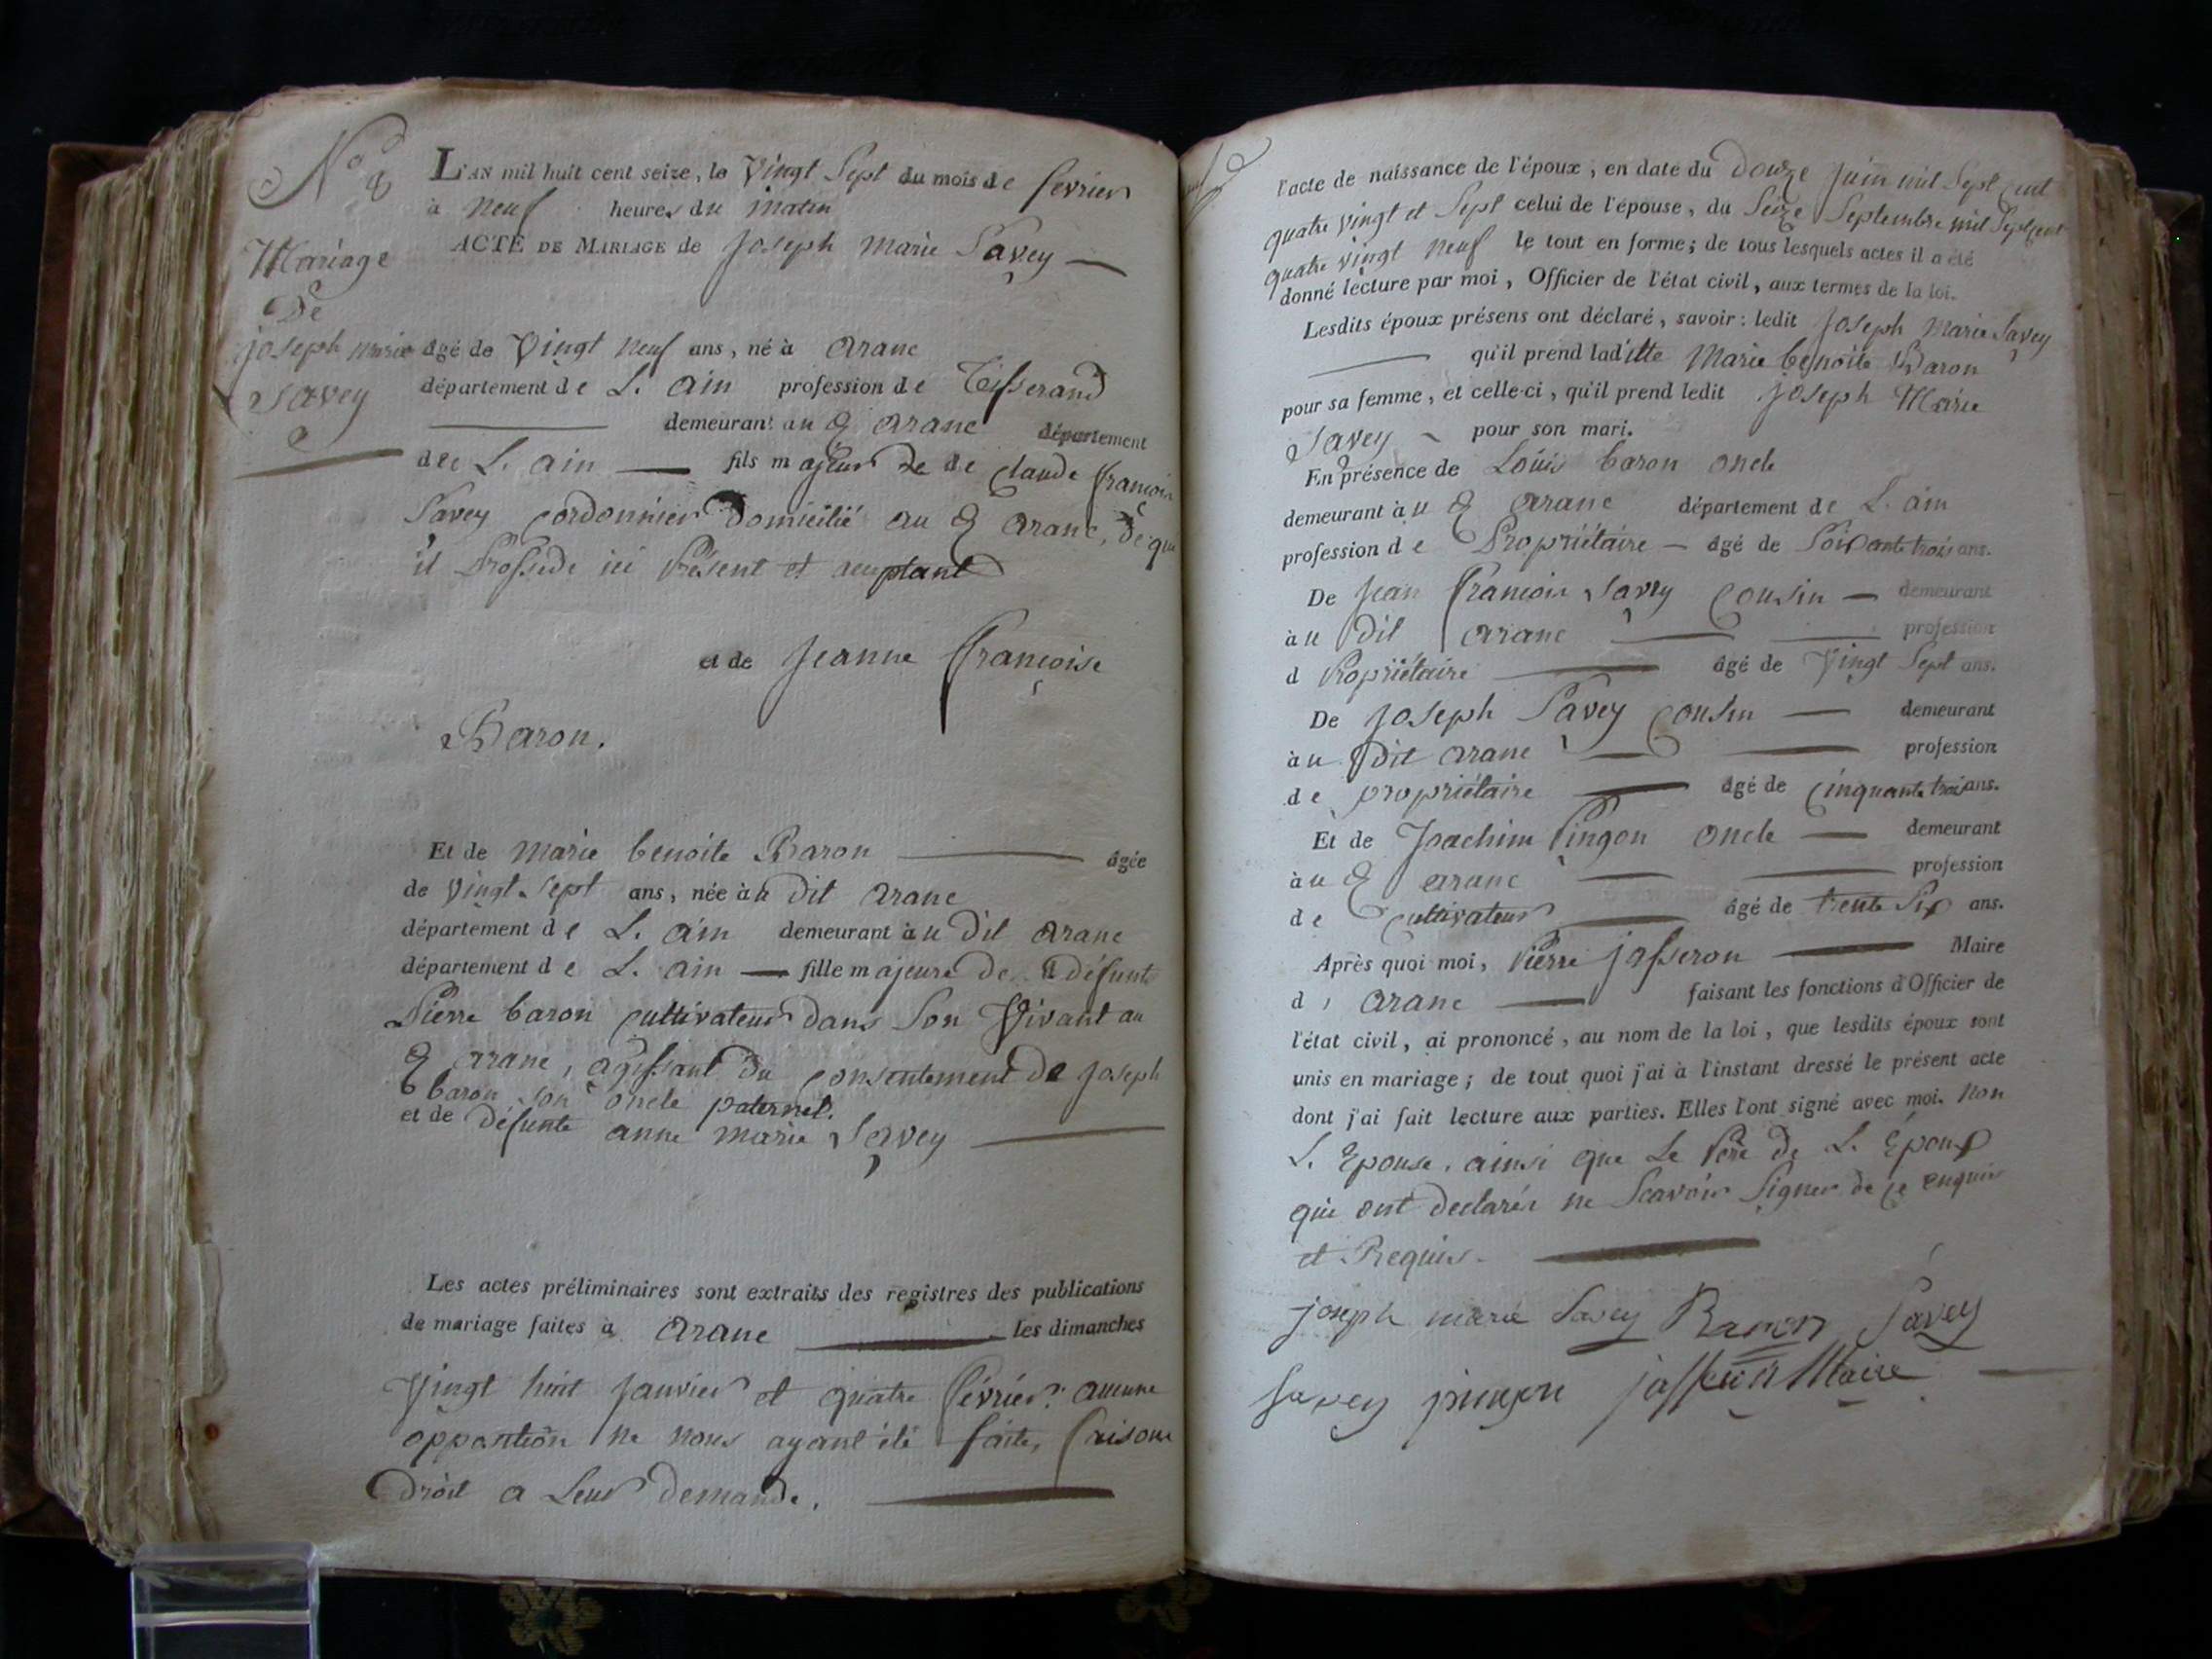 N° 8
Mariage
De
joseph marie
Savey
L'AN mil huit cent seize, le Vingt Sept du mois de fevrier
à neuf heures du matin
ACTE DE MARIAGE de Joseph Marie Savey —
âgé de Vingt neuf ans, né à arane
département de L. ain profession de Tisserand
demeurant au d arane département
dee L. ain — fils majeur de de Claude françois
Savey Cordonnier domicilié au d arane, de qui
il Prossede ici Présent et acceptant
et de Jeanne françoise
Baron.
Et de marie benoite Baron — âgée
de vingt-sept ans, née àu dit arane
département de L. ain demeurant àu dit arane
département de L. ain — fille majeure de défunt
Pierre baron cultivateur dans Son Vivant au
d arane, agissant du consentement de joseph
baron son oncle paternel.
et de défunte anne marie Savey —
Les actes préliminaires sont extraits des registres des publications
de mariage faites à arane — les dimanches
Vingt huit janvier et quatre février. aucune
opposition ne nous ayant été faite, faisons
Droit a Leur demande. —
l'acte de naissance de l'époux, en date du Douze juin mil Sept Cent
quatre vingt et Sept celui de l'épouse, du Seize Septembre mil Sept Cent
quatre vingt neuf le tout en forme; de tous lesquels actes il a été
donné lecture par moi, Officier de l'état civil, aux termes de la loi.
Lesdits époux présens ont déclaré, savoir: ledit Joseph Marie Savey
— qu'il prend laditte Marie benoite Baron
pour sa femme, et celle-ci, qu'il prend ledit Joseph Marie
Savey - pour son mari.
En présence de Loüis baron oncle
demeurant àu d arane département de L. ain
profession de Propriétaire — âgé de Soixante trois ans.
De Jean françois Savey Cousin — demeurant
àu dit arane — — profession
d Propriétaire — âgé de Vingt Sept ans.
De Joseph Savey Cousin — demeurant
àu dit arane — — profession
de propriétaire — âgé de Cinquante trois ans.
Et de Joachim Pingon oncle — demeurant
àu d arane — — profession
de Cultivateur — âgé de trente Six ans.
Après quoi moi, Pierre jasseron — Maire
d, arane — faisant les fonctions d'Officier de
l'état civil, ai prononcé, au nom de la loi, que lesdits époux sont
unis en mariage; de tout quoi j'ai à l'instant dressé le présent acte
dont j'ai fait lecture aux parties. Elles l'ont signé avec moi. Non
L. Epouse. ainsi que Le Père de L. Epoux
qui ont declarés ne Scavoir Signer de ce enquis
et Requis. —
joseph marie Savey Baron Savey
Savey pingon jasseron Maire —